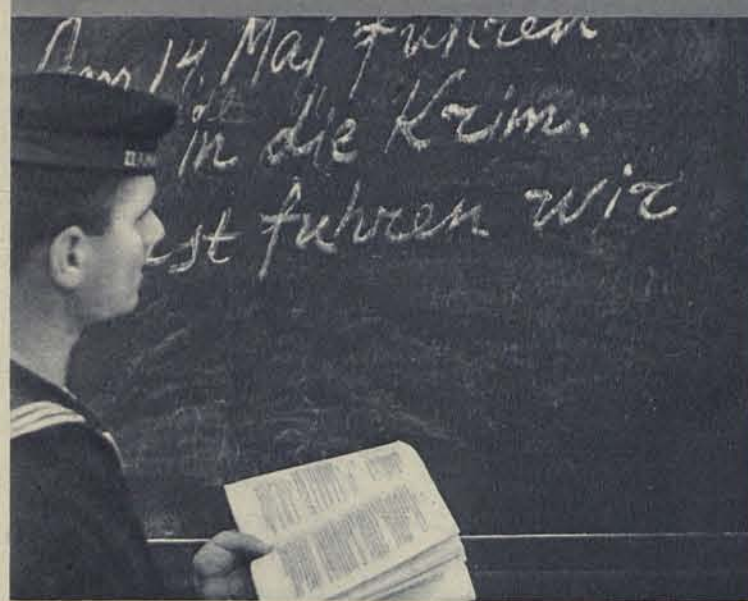 Am 14. Mai fuhren
in die Krim.
fuhren wir